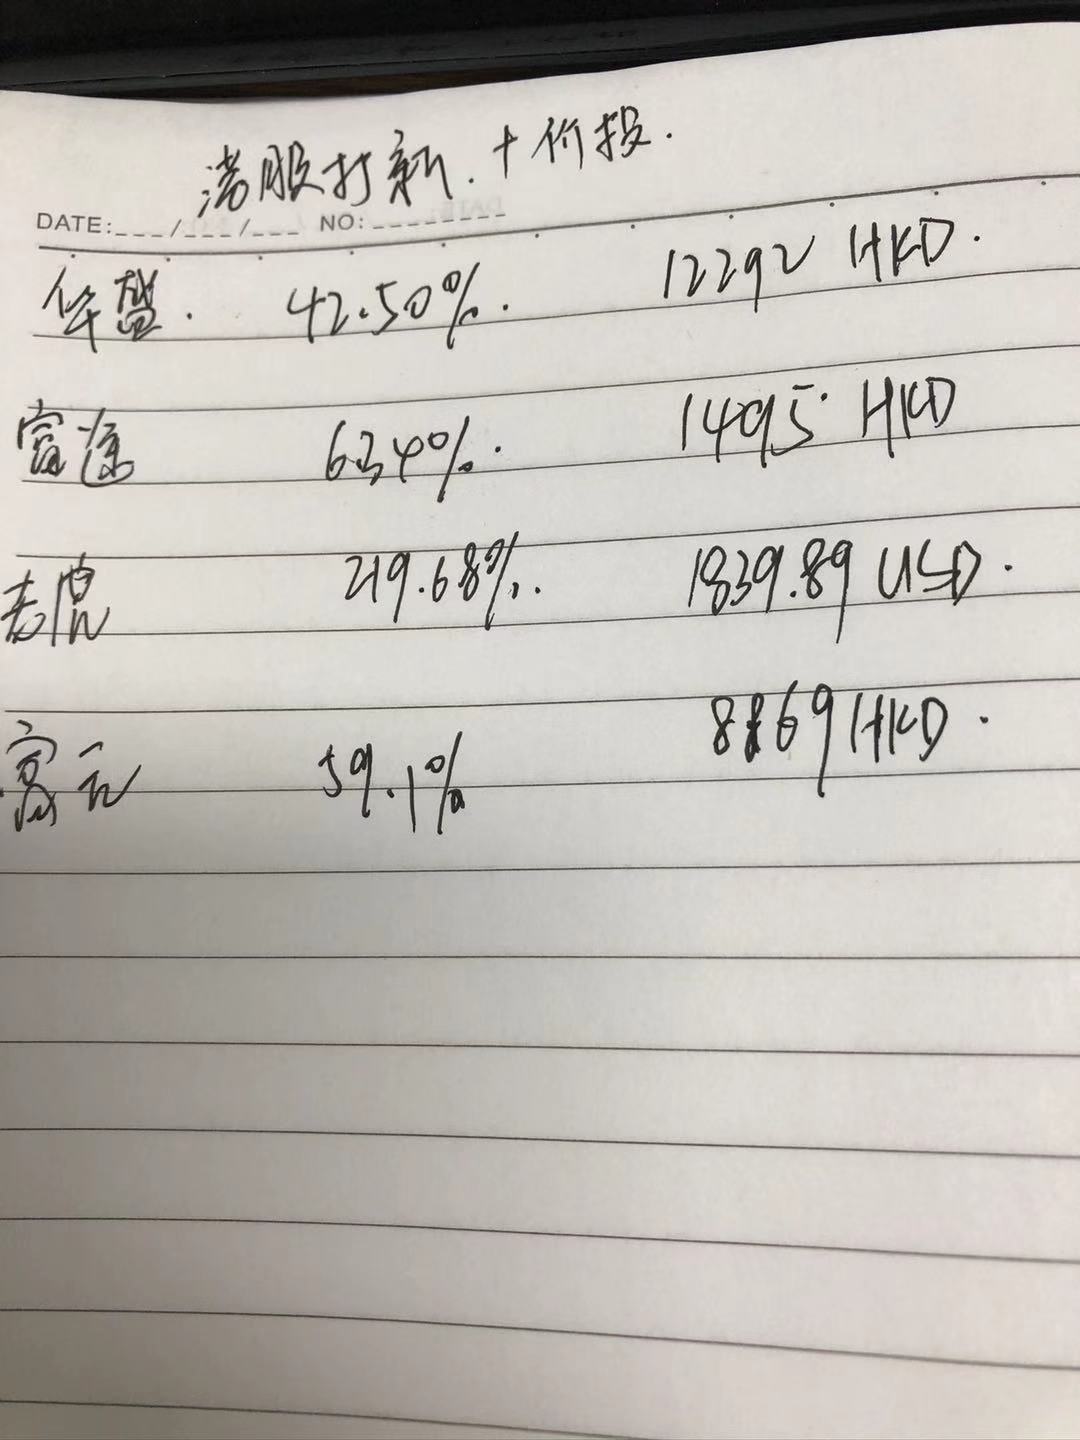 港股打新.+价投.
DATE:___/___/___ NO:________
华盛. 42.50%. 12292 HKD.
富途 63.40%. 1495 HKD
老虎 219.68%. 1839.89 USD.
富元 59.1% 8869 HKD.